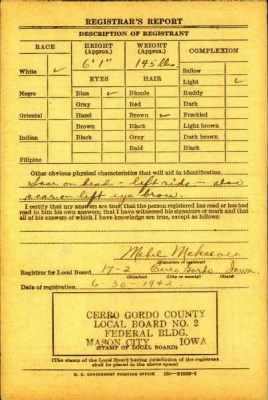 REGISTRAR'S REPORT
DESCRIPTION OF REGISTRANT
RACE HEIGHT (Approx.) WEIGHT (Approx.) COMPLEXION
6' 1" 145 lbs.
White ✓ Sallow
EYES HAIR Light ✓
Negro Blue ✓ Blonde Ruddy
Gray Red Dark
Oriental Hazel Brown ✓ Freckled
Brown Black Light brown
Indian Black Gray Dark brown
Bald Black
Filipino
Other obvious physical characteristics that will aid in identification
Scar on head - left side - also
scar on left eye brow.
I certify that my answers are true; that the person registered has read or has had
read to him his own answers; that I have witnessed his signature or mark and that
all of his answers of which I have knowledge are true, except as follows:
Mabel
(Signature of registrar)
Registrar for Local Board 17-2 Cerro Gordo Iowa
(Number) (City or county) (State)
Date of registration 6 30 1942
CERRO GORDO COUNTY
LOCAL BOARD NO. 2
FEDERAL BLDG.
MASON CITY IOWA
(STAMP OF LOCAL BOARD)
(The stamp of the Local Board having jurisdiction of the registrant
shall be placed in the above space)
U. S. GOVERNMENT PRINTING OFFICE